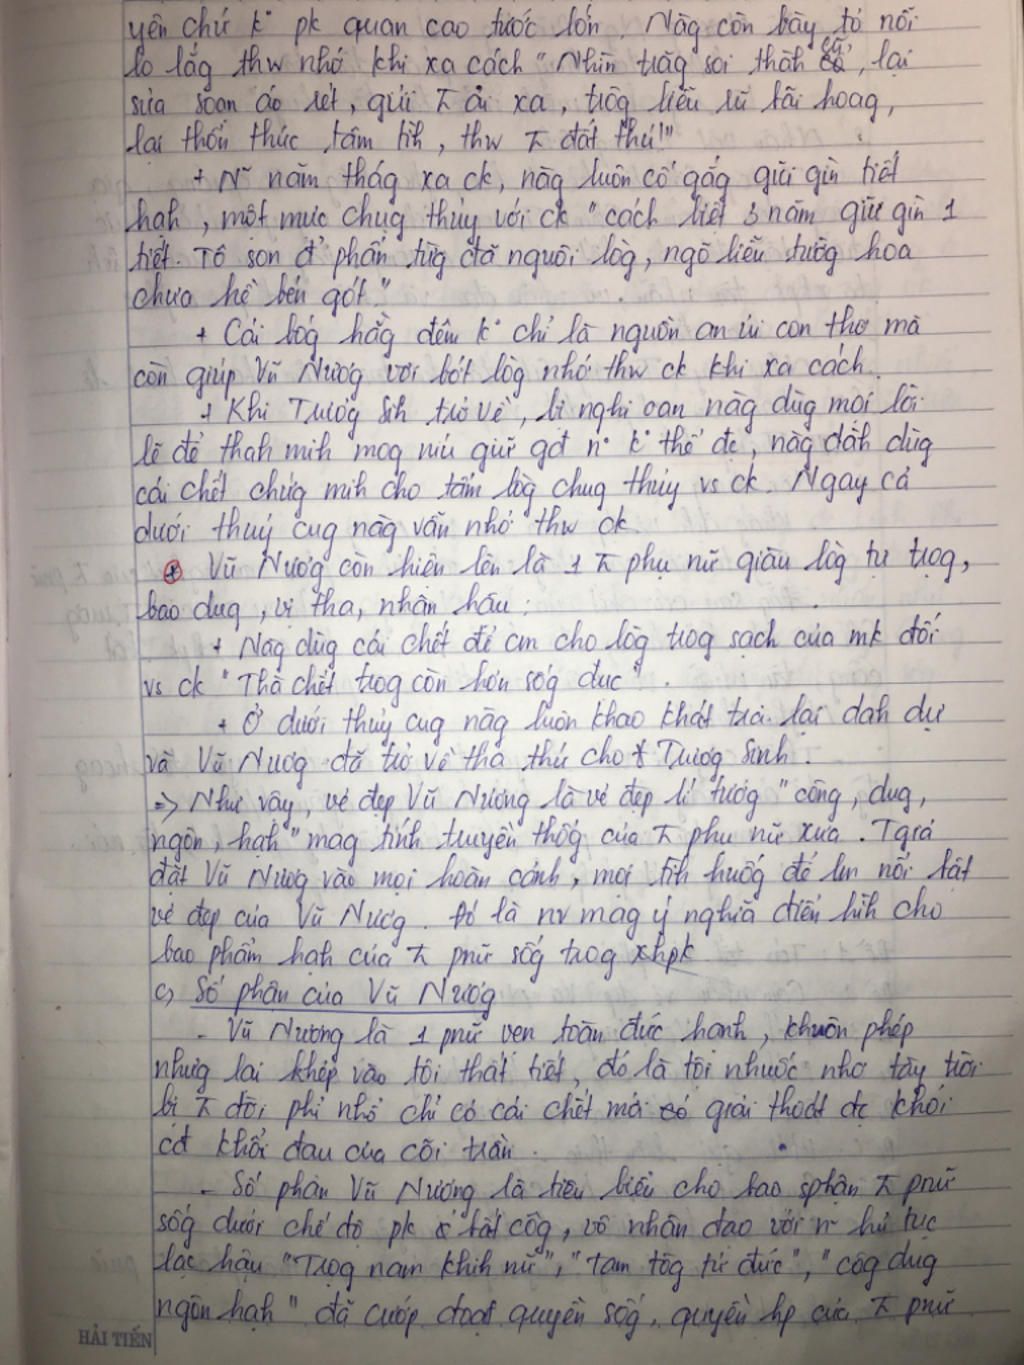 yên chứ k° pk quan cao tước lớn. Nàg còn bày tỏ nỗi
lo lắg thw nhớ khi xa cách "Nhìn trăg soi thàh cũ, lại
sửa soạn áo rét, gửi ㅈ ải xa, trôg liễu rủ bãi hoag,
lại thổn thức tâm tìh, thw ㅈ đất thú!"
+ N~ năm thág xa ck, nàg luôn cố gắg giữ gìn tiết
hạh, một mực chug thủy với ck "cách biệt 3 năm giữ gìn 1
tiết. Tô son đ' phấn từg đã nguôi lòg, ngõ liễu tườg hoa
chưa hề bén gót."
+ Cái bóg hằg đêm k° chỉ là nguồn an ủi con thơ mà
còn giúp Vũ Nươg vơi bớt lòg nhớ thw ck khi xa cách.
+ Khi Trươg Sih trở về, bị nghi oan nàg dùg mọi lời
lẽ để thah mih mog níu giữ gđ n° k° thể đc, nàg dàh dùg
cái chết chứg mih cho tấm lòg chug thủy vs ck. Ngay cả
dưới thuỷ cug nàg vẫn nhớ thw ck.
* Vũ Nươg còn hiện lên là 1 ㅈ phụ nữ giàu lòg tự trọg,
bao dug, vị tha, nhân hậu:
+ Nàg dùg cái chết để cm cho lòg trog sạch của mk đối
vs ck "Thà chết trog còn hơn sốg đục".
+ Ở dưới thủy cug nàg luôn khao khát trả lại dah dự
và Vũ Nươg đã trở về tha thứ cho Trươg Sinh.
=> Như vậy, vẻ đẹp Vũ Nương là vẻ đẹp lí tưởg "công, dug,
ngôn, hạh" mag tính truyền thốg của ㅈ phụ nữ xưa. Tgiả
đặt Vũ Nươg vào mọi hoàn cảnh, mọi tìh huốg để lm nổi bật
vẻ đẹp của Vũ Nươg. Đó là nv mag ý nghĩa điển hìh cho
bao phẩm hạh của ㅈ pnữ sốg trog xhpk
c) Số phận của Vũ Nươg
- Vũ Nương là 1 pnữ vẹn toàn đức hạnh, khuôn phép
nhưg lại khép vào tội thất tiết, đó là tội nhuốc nhơ tày trời
bị ㅈ đời phỉ nhổ chỉ có cái chết mới giải thoát đc khỏi
cđ khổ đau của cõi trần.
- Số phận Vũ Nương là tiêu biểu cho bao sphận ㅈ pnữ
sốg dưới chế độ pk bất côg, vô nhân đạo với n~ hủ tục
lạc hậu "Trọg nam khih nữ", "tam tòg tứ đức", "côg dug
ngôn hạh" đã cướp đoạt quyền sốg, quyền hp của ㅈ pnữ
HẢI TIẾN